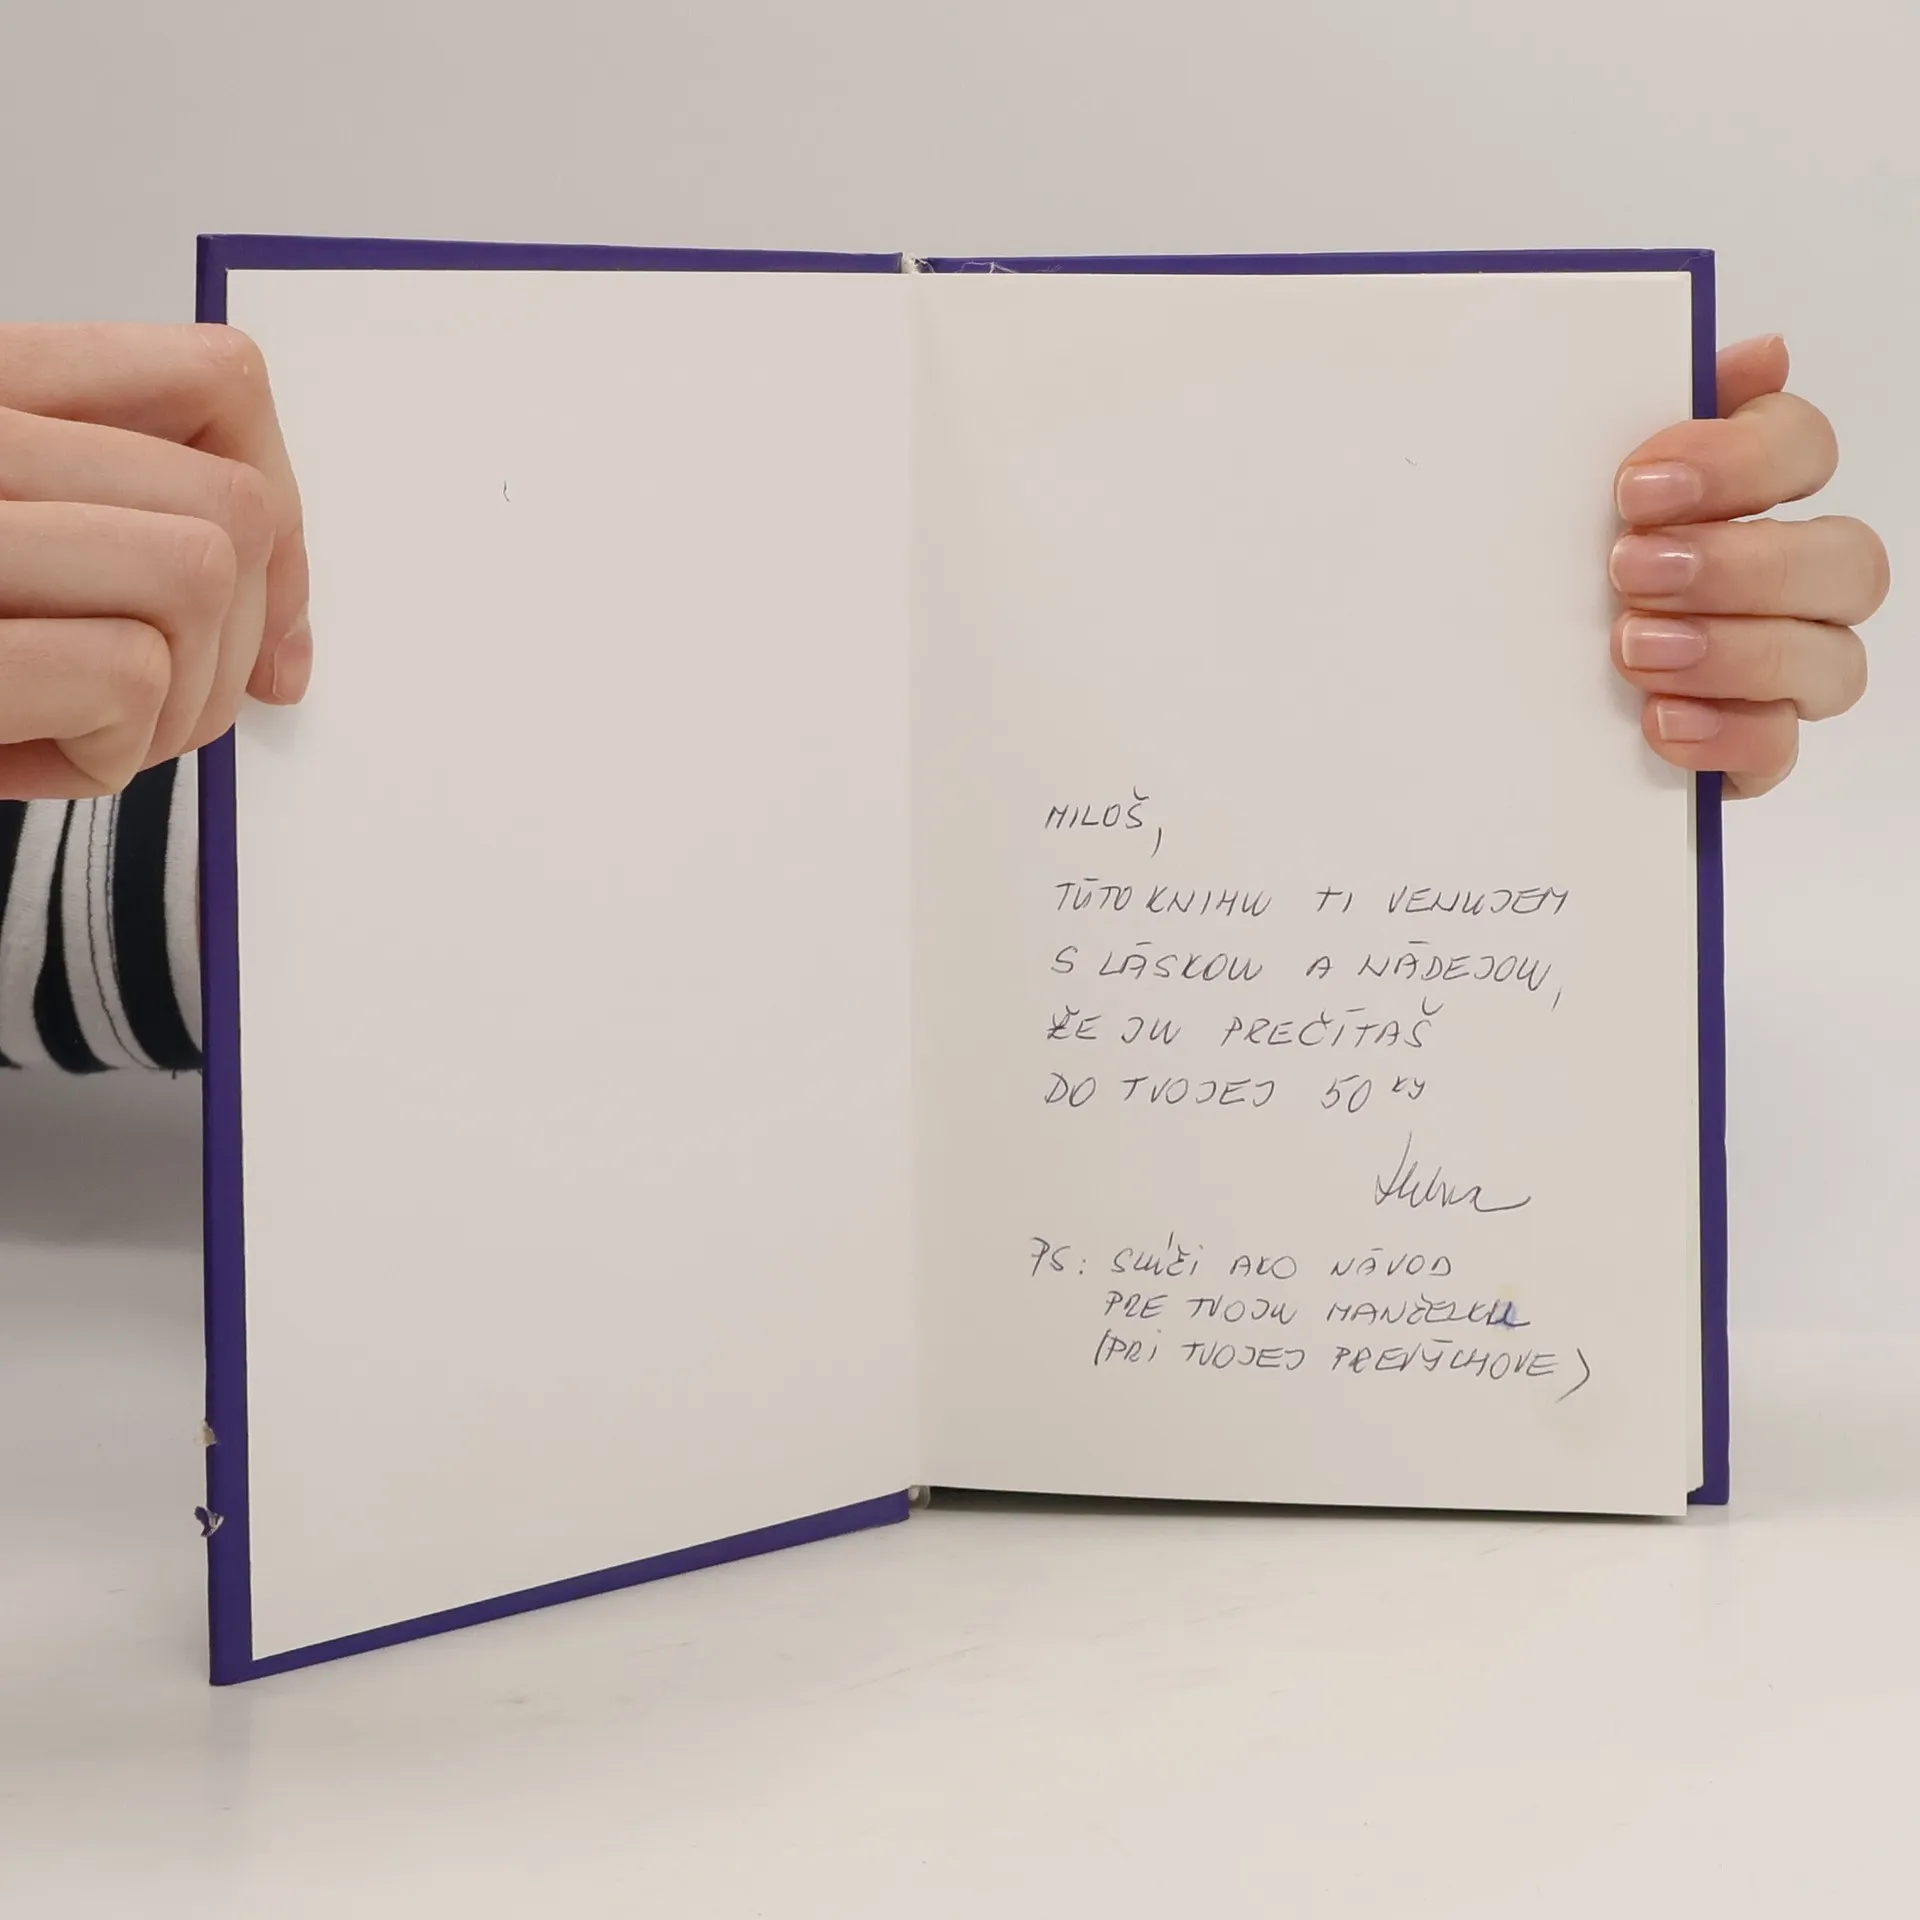 MILOŠ,
TÚTO KNIHU TI VENUJEM
S LÁSKOU A NÁDEJOU,
ŽE JU PREČÍTAŠ
DO TVOJEJ 50 KY
PS: SLÚŽI AKO NÁVOD
PRE TVOJU MANŽELKU
(PRI TVOJEJ PREVÝCHOVE)